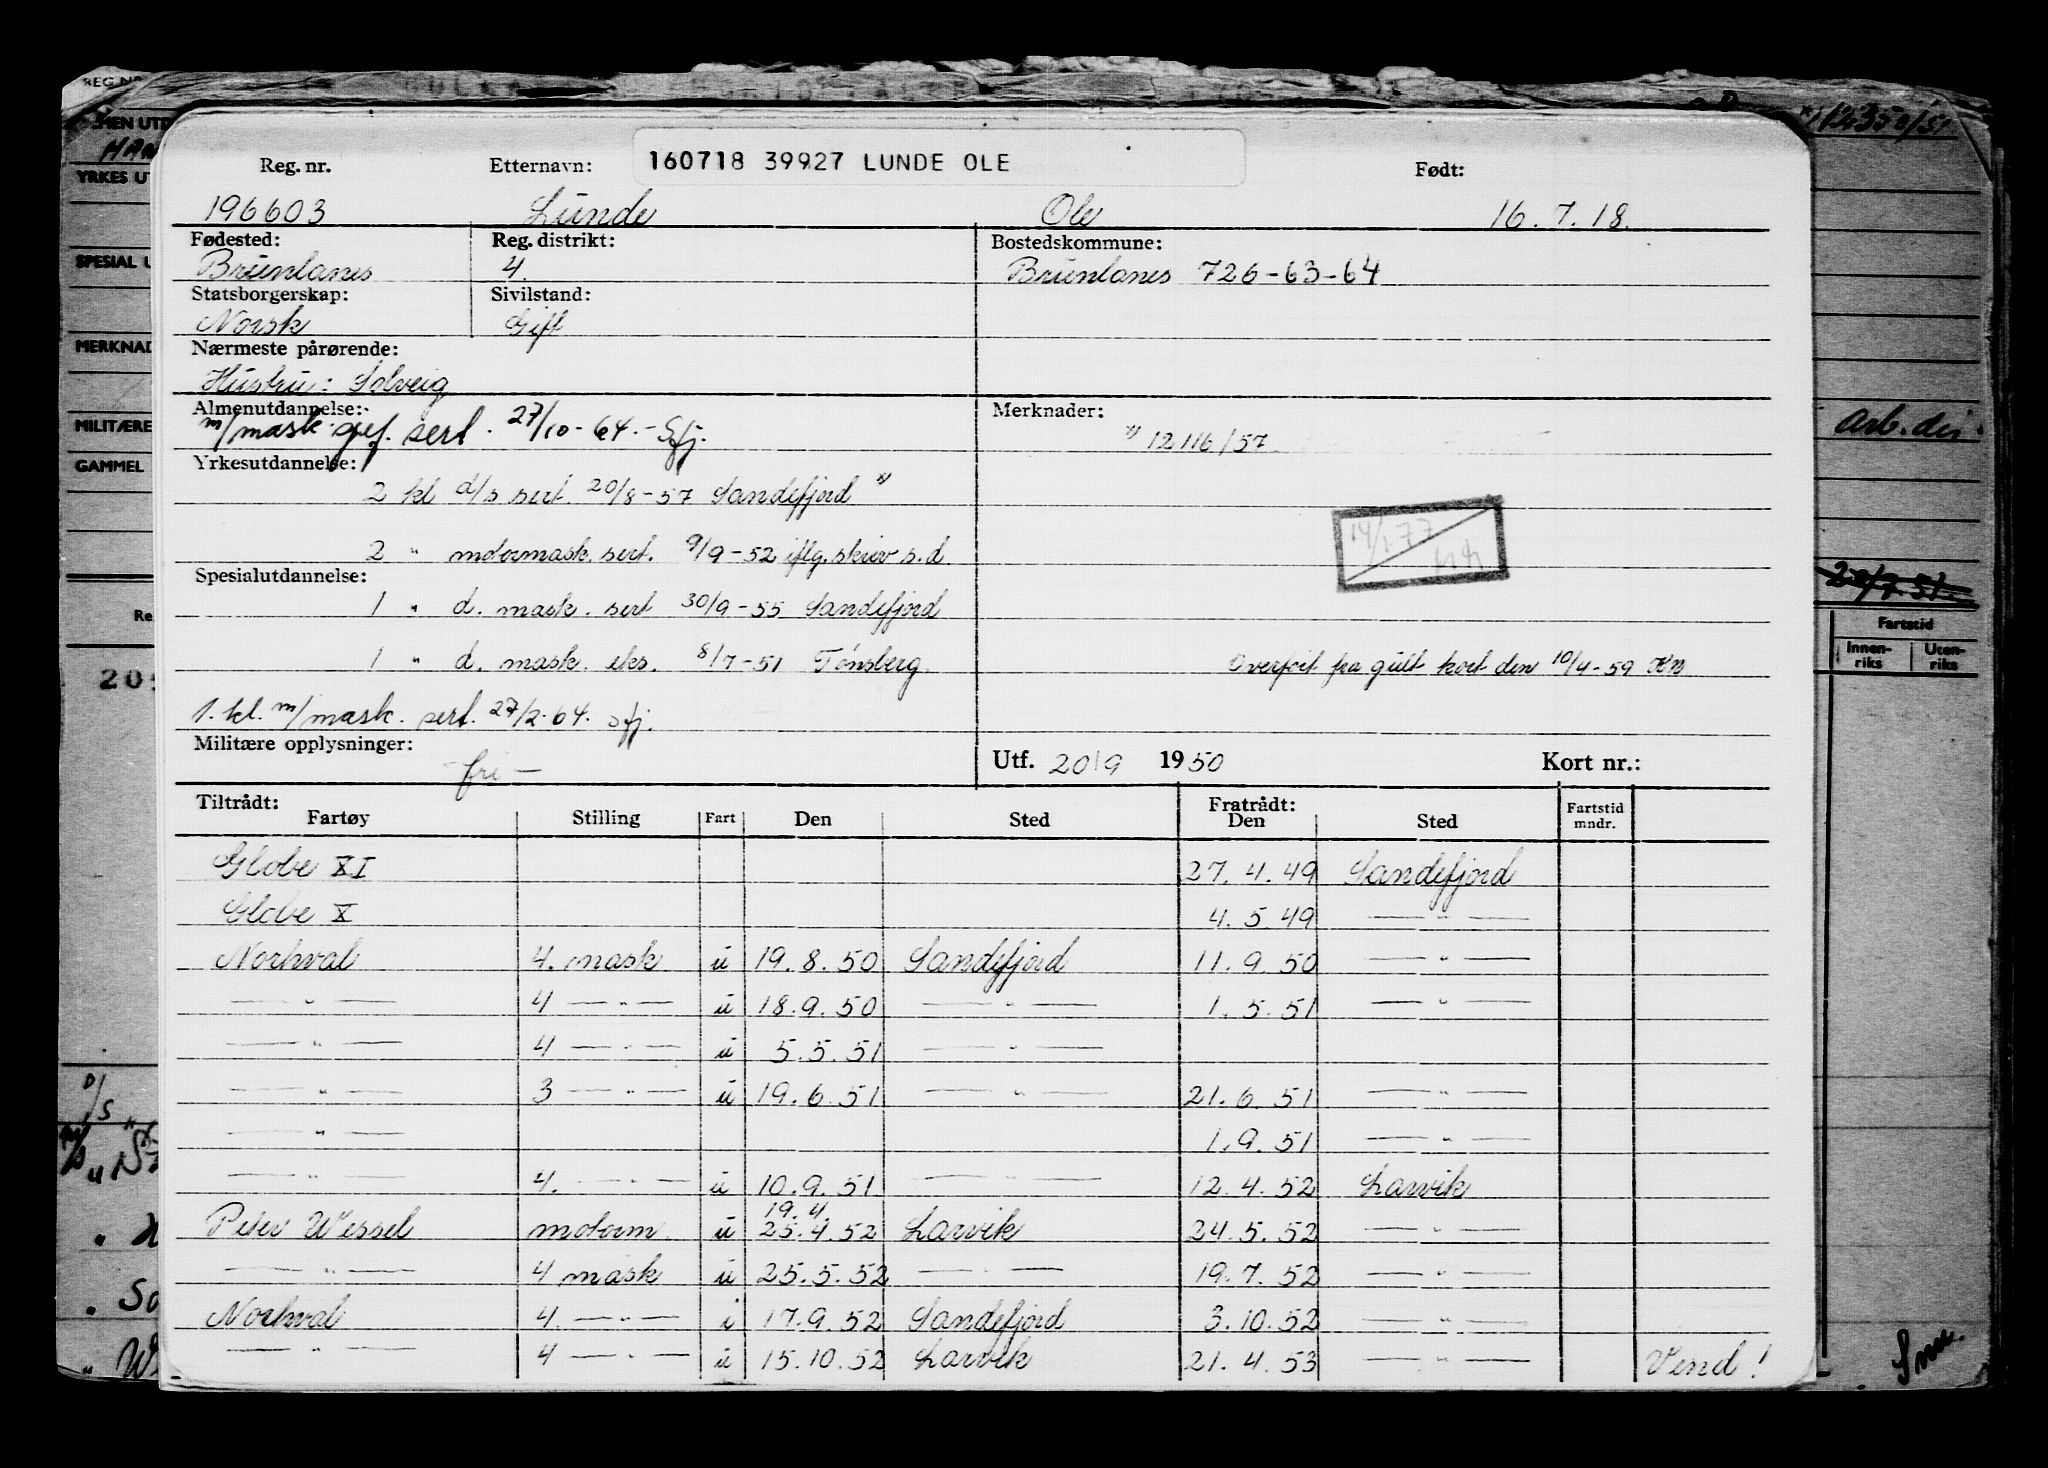 160718 39927 LUNDE OLE
Reg. nr. Etternavn: Født:
196603 Lunde Ole 16.7.18.
Fødested: Reg. distrikt: Bostedskommune:
Brunlanes 4. Brunlanes 726-63-64
Statsborgerskap: Sivilstand:
Norsk Gift
Nærmeste pårørende:
Hustru: Solveig
Almenutdannelse: Merknader:
m/mask. sert. 27/10-64.- Sfj.
x) 12116/57
Yrkesutdannelse:
2 kl d/s sert. 20/8-57 Sandefjord x)
2 " motormask. sert. 9/9-52 iflg. skriv s.d.
Spesialutdannelse:
1 " d. mask. sert 30/9-55 Sandefjord
1 " d. mask. eks. 8/7-51 Tønsberg.
Overført fra gult kort den 10/4-59 KN
1. kl. m/mask. sert. 27/2-64. Sfj.
14/1.77
Militære opplysninger: Utf. 20/9 1950 Kort nr.:
- fri -
Tiltrådt: Fratrådt:
Fartøy Stilling Fart Den Sted Den Sted Fartstid mndr.
Globe XI 27.4.49 Sandefjord
Globe X 4.5.49 — " —
Norhval 4. mask u 19.8.50 Sandefjord 11.9.50 — " —
— " — 4 — " — u 18.9.50 — " — 1.5.51 — " —
— " — 4 — " — u 5.5.51 — " —
— " — 3 — " — u 19.6.51 — " — 21.6.51 — " —
— " — 1.9.51 — " —
— " — 4. — " — u 10.9.51 — " — 12.4.52 Larvik
19.4.
Peter Wessel motorm. u 25.4.52 Larvik 24.5.52 — " —
— " — 4 mask u 25.5.52 — " — 19.7.52 — " —
Norhval 4. — " — i 17.9.52 Sandefjord 3.10.52 — " —
— " — 4 — " — u 15.10.52 Larvik 21.4.53 — " — Vend!
REG.NR.
YRKES UT
SPESIAL U
MERKNAD
MILITÆRE
GAMMEL
arb. din.
20/7.51.
Fartstid
Innen-riks Uten-riks